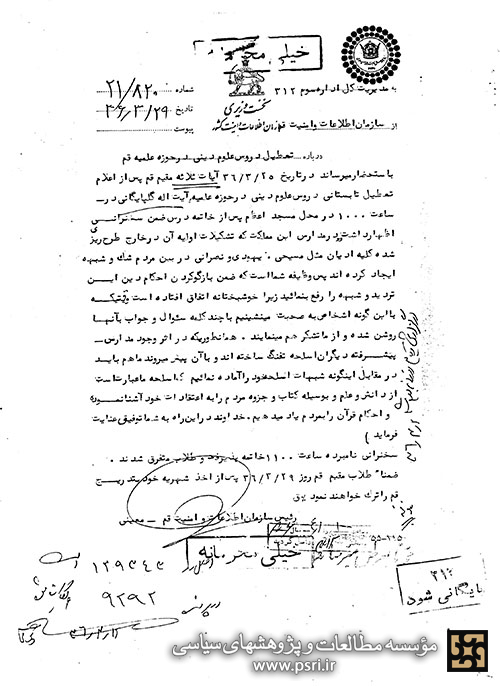 خیلی محرمانه
به مدیریت کل اداره سوم ۳۱۲
شماره ۲۱/۸۲۰
نخست وزیری
تاریخ ۳۶/۳/۲۹
از سازمان اطلاعات و امنیت قم
سازمان اطلاعات و امنیت کشور
پیوست
درباره تعطیل دروس علوم دینی در حوزه علمیه قم
باستحضار میرساند در تاریخ ۳۶/۳/۲۵ آیات ثلاثه مقیم قم پس از اعلام
تعطیل تابستانی دروس علوم دینی در حوزه علمیه، آیت اله گلپایگانی در
ساعت ۱۰۰۰ در محل مسجد اعظم پس از خاتمه درس ضمن سخنرانی
اظهار داشت در مدارس این مملکت که تشکیلات اولیه آن در خارج طرح ریزی
شده کلیه ادیان مثل مسیحی یهودی و نصرانی در بین مردم شک و شبهه
ایجاد کرده اند پس وظیفه شما است که ضمن بازگو کردن احکام دین این
تردید و شبهه را رفع بنمائید زیرا خوشبختانه اتفاق افتاده است وقتیکه
با این گونه اشخاص به صحبت مینشینیم با چند کلمه سئوال و جواب با آنها
روشن شده و از ما تشکر هم مینمایند . همانطوریکه در اثر وجود مدارس
پیشرفته دیگران اسلحه تفنگ ساخته اند و با آن پیش میروند ما هم باید
در مقابل اینگونه شبهات اسلحه خود را آماده نمائیم که اسلحه ما عبارتست
از دانش و علم و بوسیله کتاب و جزوه مردم را به اعتقادات خود آشنا نموده
و احکام قرآن را بمردم یاد میدهیم . خداوند در این راه به شما توفیق عنایت
فرماید )
سخنرانی نامبرده ساعت ۱۱۰۰ خاتمه پذیرفت و طلاب متفرق شدند .
ضمناً طلاب مقیم قم روز ۳۶/۳/۲۹ پس از اخذ شهریه خود بتدریج
قم را ترک خواهند نمود
رئیس سازمان اطلاعات و امنیت قم - معینی
خیلی محرمانه
۵۵-۲۲۵
۱۲۹۳۴۳
۹۲۹۲
۳۱۲
بایگانی شود
مؤسسه مطالعات و پژوهشهای سیاسی
www.psri.ir